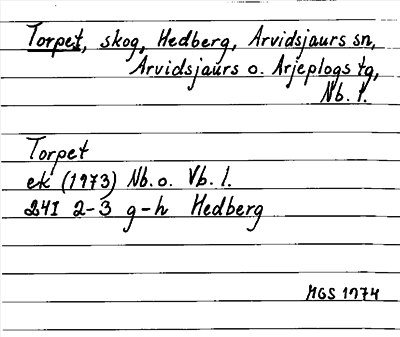 Torpet, skog, Hedberg, Arvidsjaurs sn,
Arvidsjaurs o. Arjeplogs tg,
Nb. l.
Torpet
ek (1973) Nb. o. Vb. l.
24I 2-3 g-h Hedberg
MGS 1974